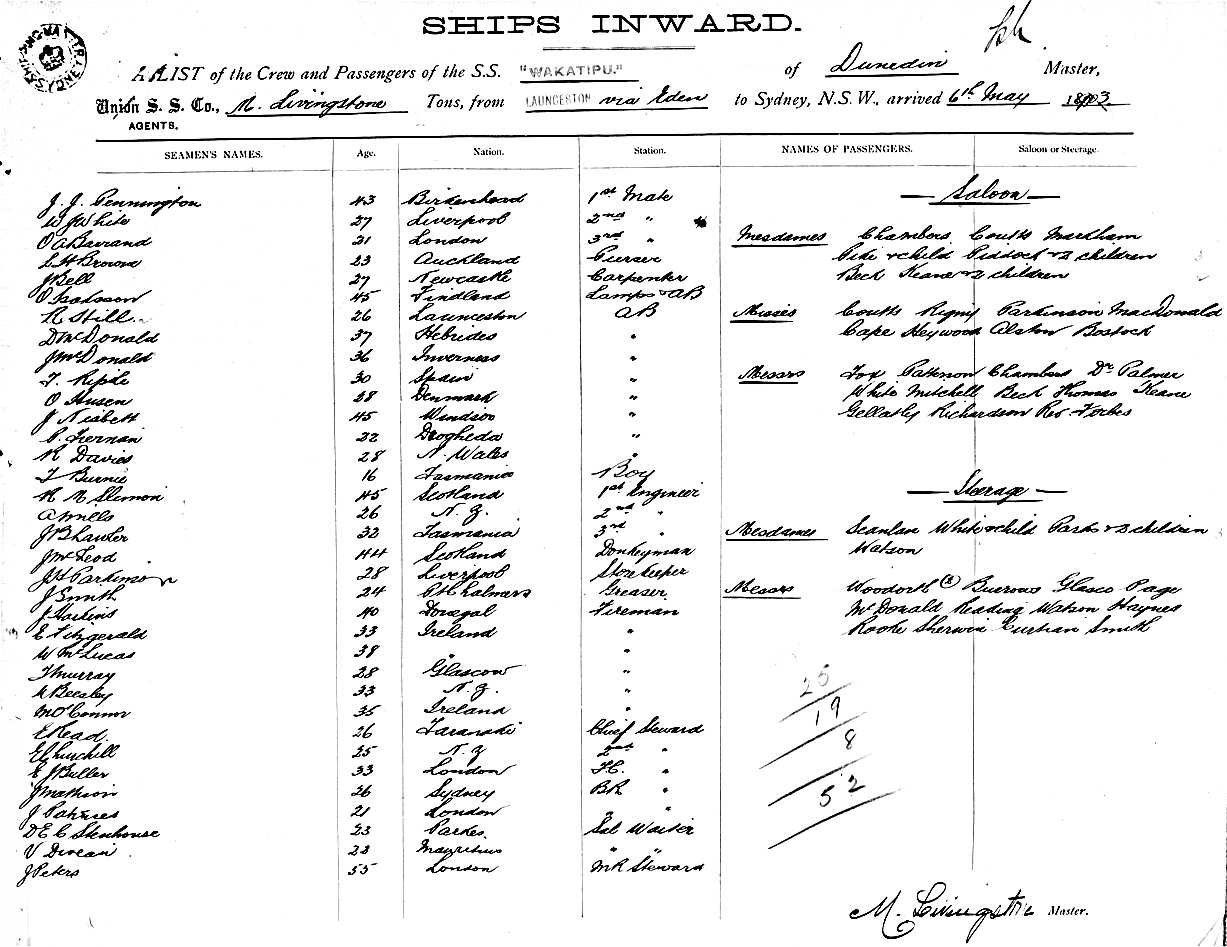 SHIPS INWARD.
A LIST of the Crew and Passengers of the S.S. "WAKATIPU." of Dunedin Master,
Union S. S. Co., M. Livingstone Tons, from LAUNCESTON via Eden to Sydney, N.S.W., arrived 6th May
AGENTS.
SEAMEN'S NAMES. Age. Nation. Station. NAMES OF PASSENGERS. Saloon or Steerage.
J. J. Pennington 43 Birkenhead 1st Mate — Saloon —
W J White 27 Liverpool 2nd "
O A Barrand 21 London 3rd " Mesdames Chambers Coutts Markham
L H Brown 23 Auckland Purser & child Piddock & 2 children
J Bell 27 Newcastle Carpenter Beck Keane & 2 children
O Isaksson 45 Findland Lamps & AB
R Still 26 Launceston AB Misses Coutts Parkinson MacDonald
D McDonald 37 Hebrides " Cape Heywood Alston Bostock
J McDonald 36 Inverness "
30 Spain " Messrs Fox Patterson Chambers Dr Palmer
O Husen 28 Denmark " White Mitchell Beck Thomas Keane
J Nisbett 45 Windsor " Gellatly Richardson Rev Forbes
P. Tiernan 22 Drogheda "
R Davies 28 N. Wales "
T Burnie 16 Tasmania Boy
R R Slimon 45 Scotland 1st Engineer — Steerage —
A Mills 26 N. Z. 2nd "
J B Lawler 32 Tasmania 3rd " Mesdames Scanlan White & child Parks & 3 children
J McLeod 44 Scotland Donkeyman Watson
J H Parkinson 28 Liverpool Storekeeper
J Smith 24 Pt Chalmers Greaser Messrs Woodorth Burrows Glasco Page
J Harkins 40 Donegal Fireman McDonald Reading Watson Haynes
E Fitzgerald 33 Ireland " Rooke Sherwin Curran Smith
W McLucas 38 " "
T Murray 28 Glascow " 25
A Beesley 33 N. Z. "
M O'Connor 35 Ireland " 19
E Read 26 Taranaki Chief Steward
E Churchill 25 N. Z 2nd " 8
E J Buller 33 London F.C. "
J Mathison 26 Sydney BR " 52
J Patries 21 London " "
D E C Stenhouse 23 Parkes. Sal Waiter
V 23 Mauritius " "
J Peters 55 London MR Steward
M. Livingstone Master.